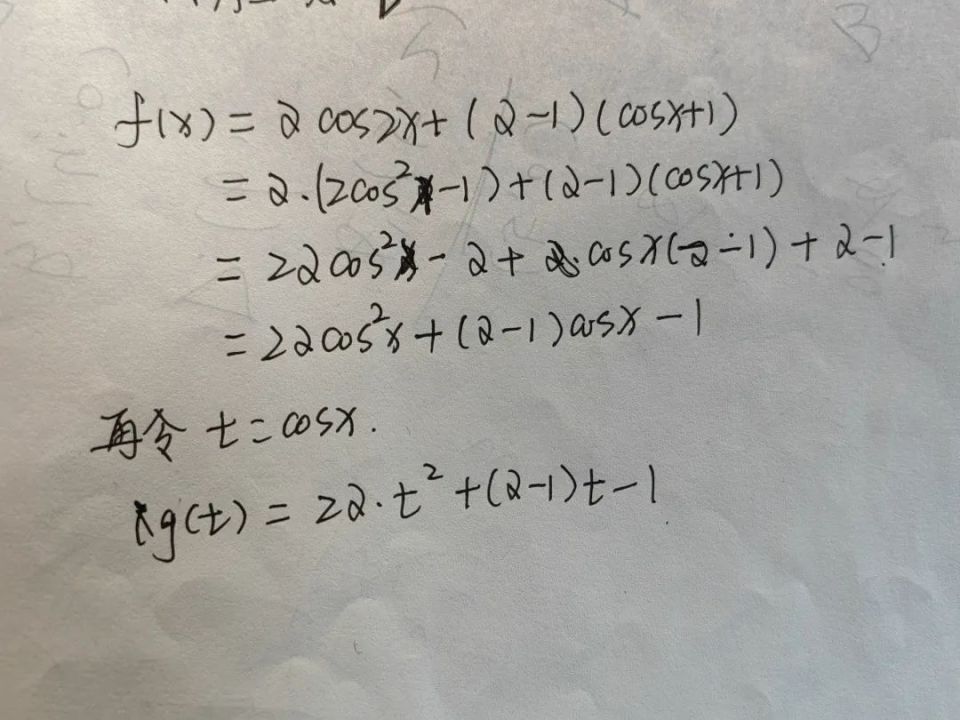 f(x) = α cos2x + (α-1)(cosx+1)
= α·(2cos²x-1)+(α-1)(cosx+1)
= 2αcos²x - α + cosx(α-1) + α-1
= 2αcos²x + (α-1)cosx - 1
再令 t=cosx.
g(t) = 2α·t²+(α-1)t-1